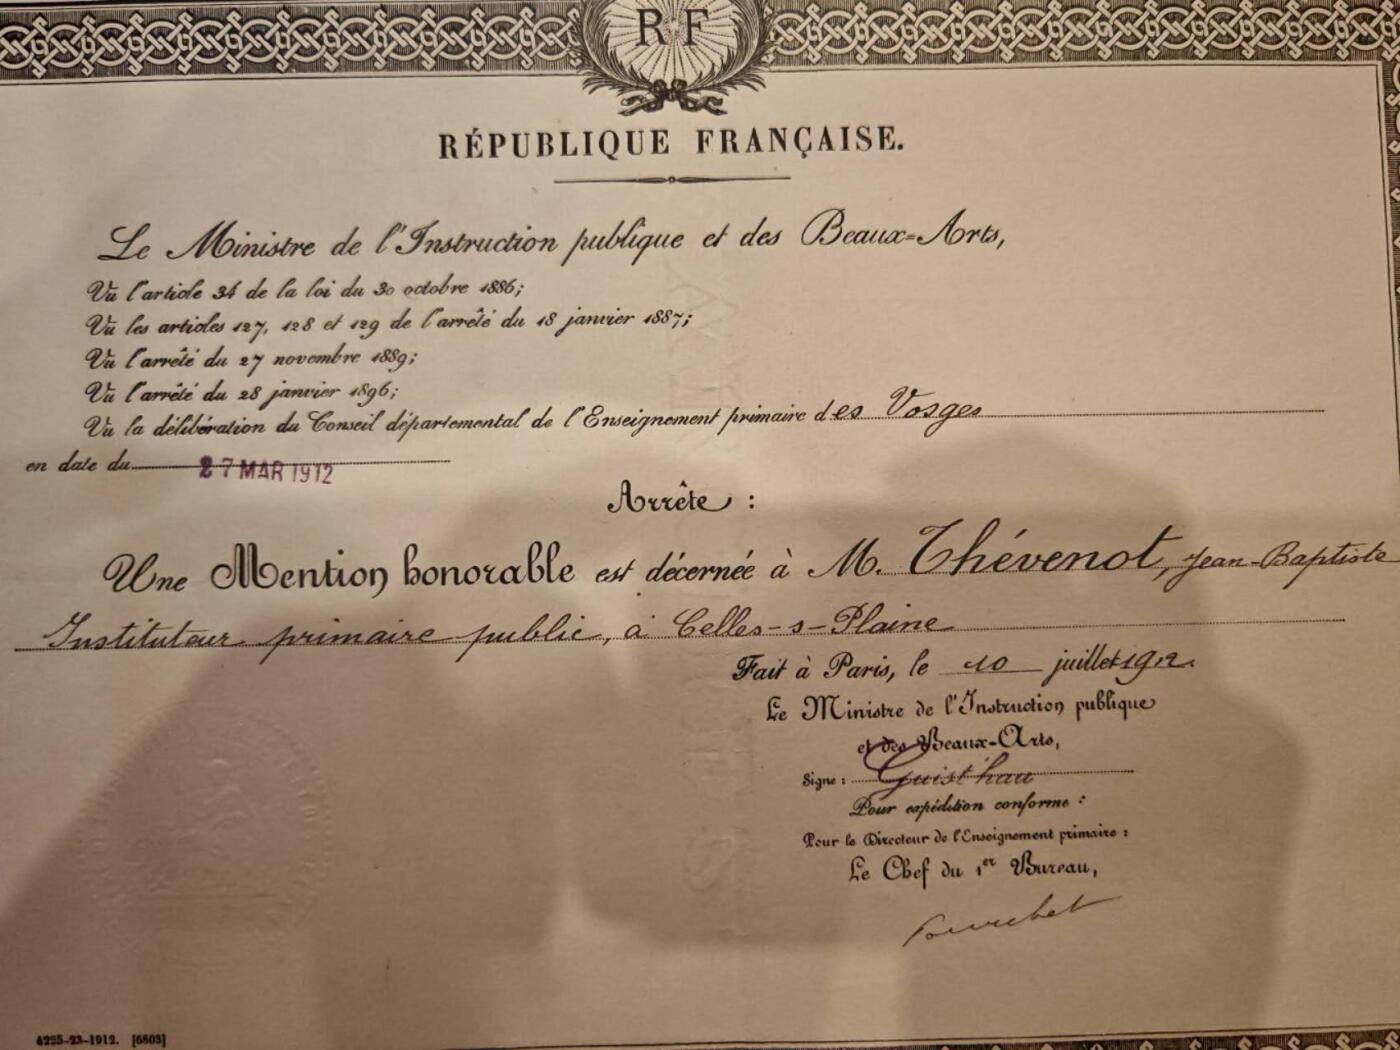 RF
RÉPUBLIQUE FRANÇAISE.
Le Ministre de l'Instruction publique et des Beaux=Arts,
Vu l'article 34 de la loi du 30 octobre 1886;
Vu les articles 127, 128 et 129 de l'arrêté du 18 janvier 1887;
Vu l'arrêté du 27 novembre 1889;
Vu l'arrêté du 28 janvier 1896;
Vu la délibération du Conseil départemental de l'Enseignement primaire des Vosges
en date du 27 MAR 1912
Arrête :
Une Mention honorable est décernée à M. Thévenot, Jean-Baptiste
Instituteur primaire public, à Celles-s-Plaine
Fait à Paris, le 10 juillet 1912.
Le Ministre de l'Instruction publique
et des Beaux-Arts,
Signé : Guist'hau
Pour expédition conforme :
Pour le Directeur de l'Enseignement primaire :
Le Chef du 1er Bureau,
4225-23-1912. [6803]